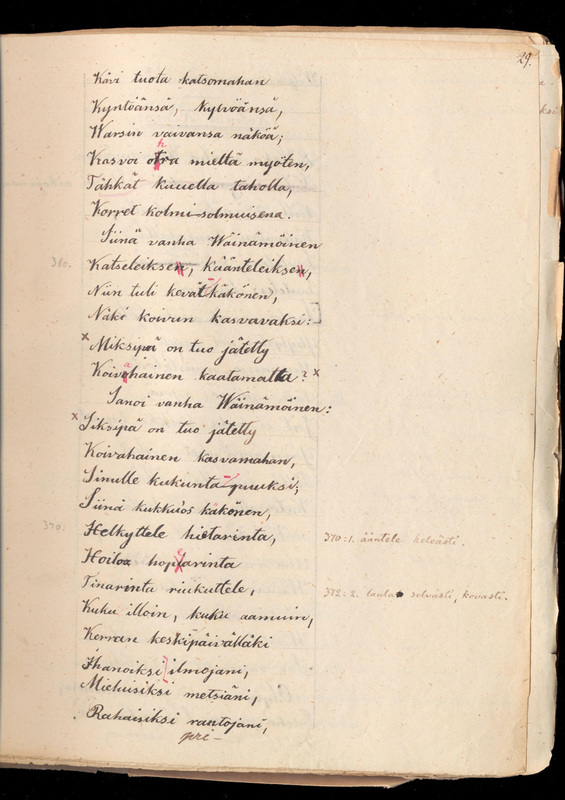 29.
Kävi tuota katsomahan
Kyntöänsä, kylvöänsä,
Warsin vaivansa näköä;
Kasvoi ohra mieltä myöten,
Tähkät kuuella taholla,
Korret kolmi-solmuisena.
Siinä vanha Wäinämöinen
360. Katseleiksen, käänteleiksen,
Niin tuli kevät-käkönen,
Näki koivun kasvavaksi:
x Miksipä on tuo jätetty
Koivahainen kaatamatta? x
Sanoi vanha Wäinämöinen:
x Siksipä on tuo jätetty
Koivahainen kasvamahan,
Sinulle kukunta-puuksi;
Siinä kukkuos käkönen,
370. Helkyttele hietarinta, 370:1. ääntele heleästi.
Hoiloa hopearinta
Tinarinta riukuttele, 372:2. laula selvästi, kovasti.
Kuku illoin, kuku aamuin,
Kerran keskipäivälläki
Ihanoiksi ilmojani,
Mieluisiksi metsiäni,
Rahaisiksi rantojani,